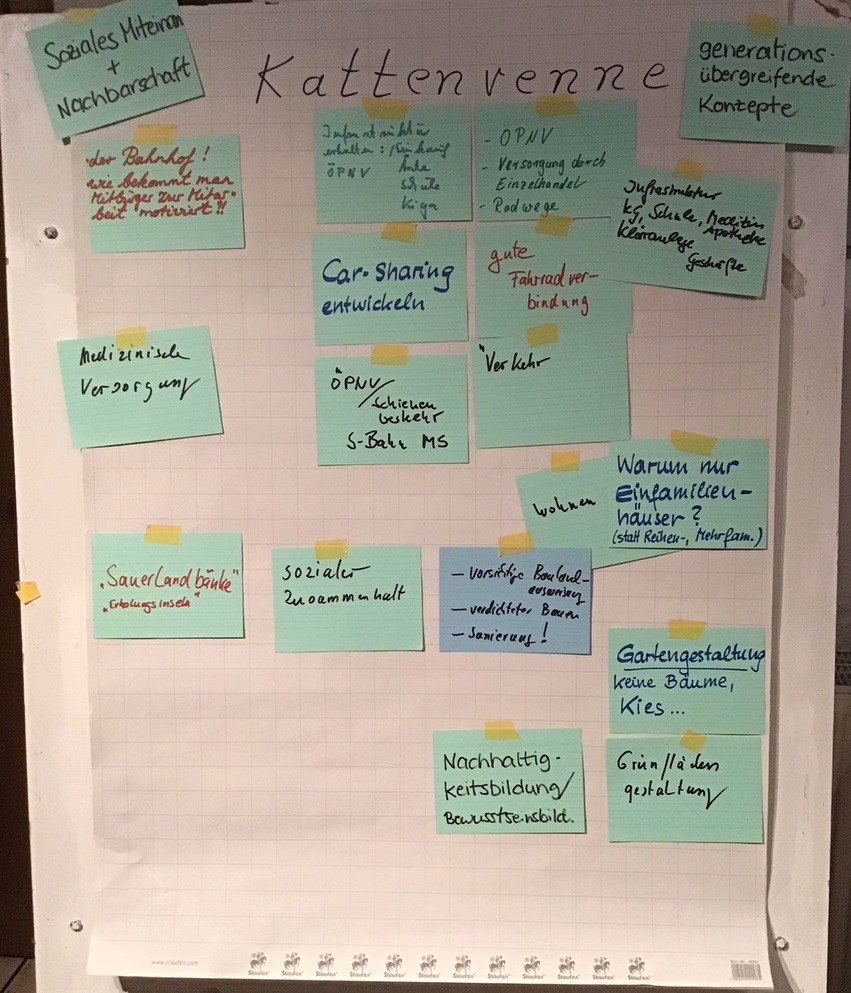 Soziales Miteinan
+
Nachbarschaft
Kattenvenne
generations-
übergreifende
Konzepte
der Bahnhof!
wie bekommt man
Mitbürger zur Mitar-
beit motiviert?!
Infrastruktur
erhalten: Einkauf
ÖPNV Ärzte
Schule
Kiga
- ÖPNV
- Versorgung durch
Einzelhandel
- Radwege
Infrastruktur
KG, Schule, Medizin
Apotheke
Kläranlage
Geschäfte
Car-Sharing
entwickeln
gute
Fahrradver-
bindung
Medizinische
Versorgung
ÖPNV/
Schienen
verkehr
S-Bahn MS
Verkehr
Wohnen
Warum nur
Einfamilien-
häuser?
(statt Reihen-, Mehrfam.)
"Sauerlandbänke"
"Erholungsinseln"
sozialer
Zusammenhalt
- vorsichtige Bauland-
ausweisung
- verdichteter Bauen
- Sanierung!
Gartengestaltung
keine Bäume,
Kies...
Nachhaltig-
keitsbildung/
Bewusstseinsbild.
Grünflächen
gestaltung
www.staufen.com
Staufen Staufen Staufen Staufen Staufen Staufen Staufen Staufen Staufen Staufen Staufen Staufen